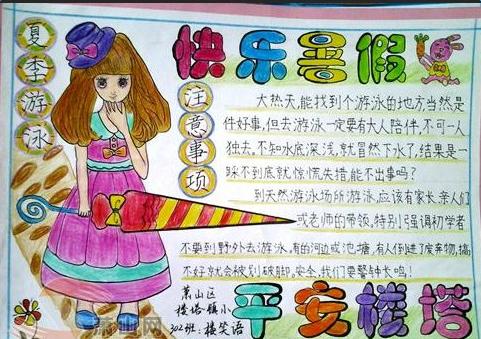 快乐暑假
夏季游泳
注意事项
大热天,能找到个游泳的地方当然是
件好事,但去游泳一定要有大人陪伴,不可一人
独去。不知水底深浅,就冒然下水了,结果是一
踩不到底就惊慌失措能不出事吗?
到天然游泳场所游泳,应该有家长亲人们
或老师的带领,特别强调初学者
不要到野外去游泳。有的河边或池塘,有人扔进了废弃物,搞
不好就会被划破脚,安全,我们要警钟长鸣!
萧山区
楼塔镇小
302班:楼笑语
平安楼塔